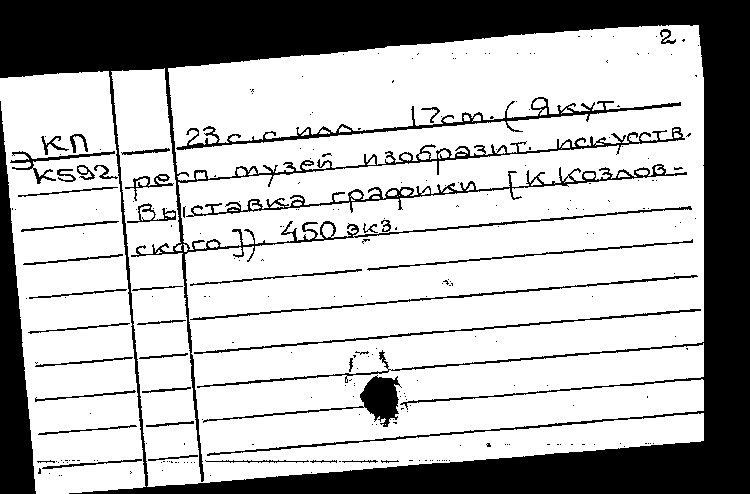 2.
КП
Э
К592
23 с. с илл. 17 см. (Якут.
респ. музей изобразит. искусств.
Выставка графики [К.Козлов-
ского]). 450 экз.